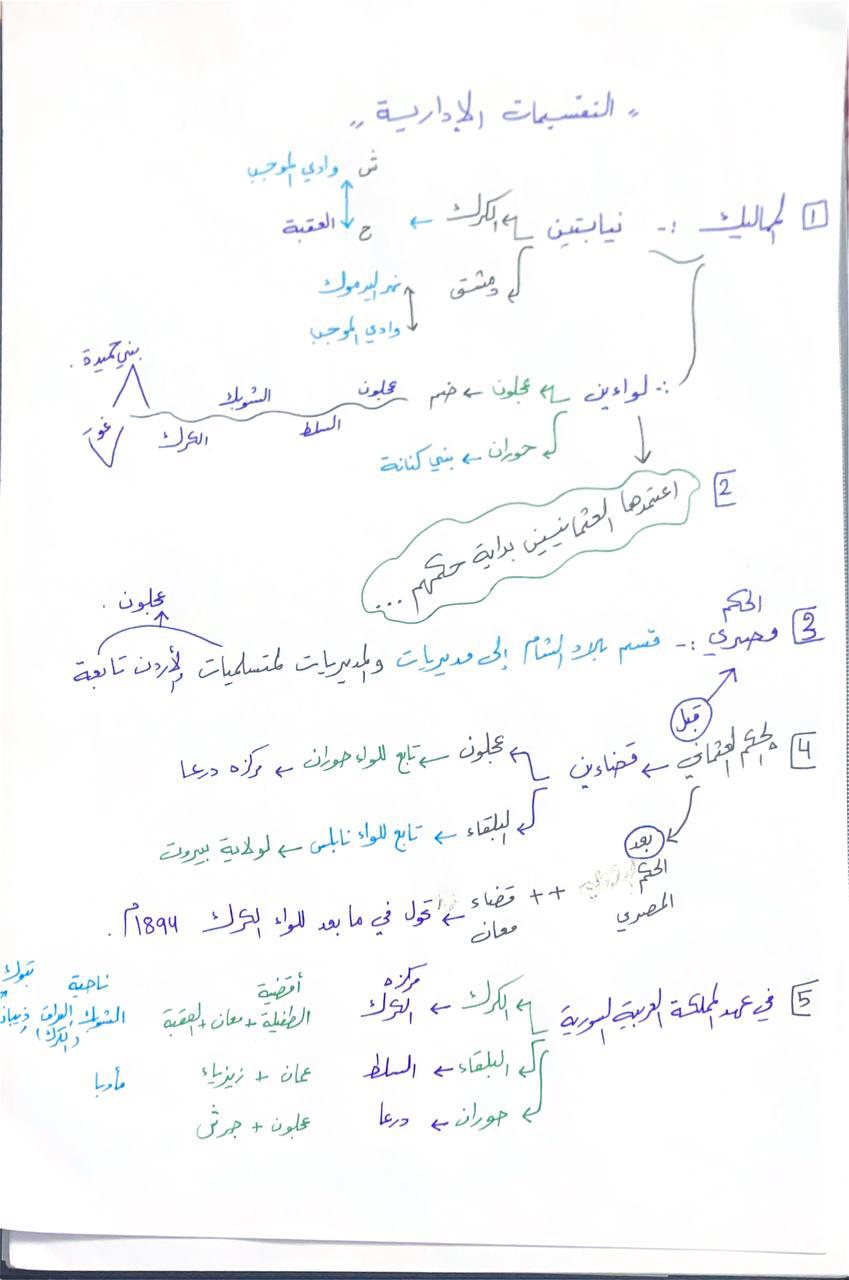 " التقسيمات الإدارية "
1 المماليك :- نيابتين
الكرك ← ش وادي الموجب
ج العقبة
دمشق نهر اليرموك
وادي الموجب
:- لواءين
عجلون ← ضم عجلون السلط الشوبك الكرك بني حميدة . غور
حوران ← بني كنانة
2 اعتمدها العثمانيين بداية حكمهم ...
3 الحكم
مصري :- قسم بلاد الشام إلى مديريات والمديريات لمتسلميات والأردن تابعة
عجلون .
قبل
4 الحكم العثماني ← قضاءين
عجلون ← تابع للواء حوران ← مركزه درعا
البلقاء ← تابع للواء نابلس ← لولاية بيروت
بعد
الحكم
المصري
++ قضاء معان ← تحول في ما بعد للواء الكرك 1894م .
5 في عهد المملكة العربية السورية
مركزه أقضية ناحية تبوك
الكرك ← الكرك الطفيلة + معان + العقبة الشوبك العراق ذيبان
(الكرك)
البلقاء ← السلط عمان + زيزياء مأدبا
حوران ← درعا عجلون + جرش